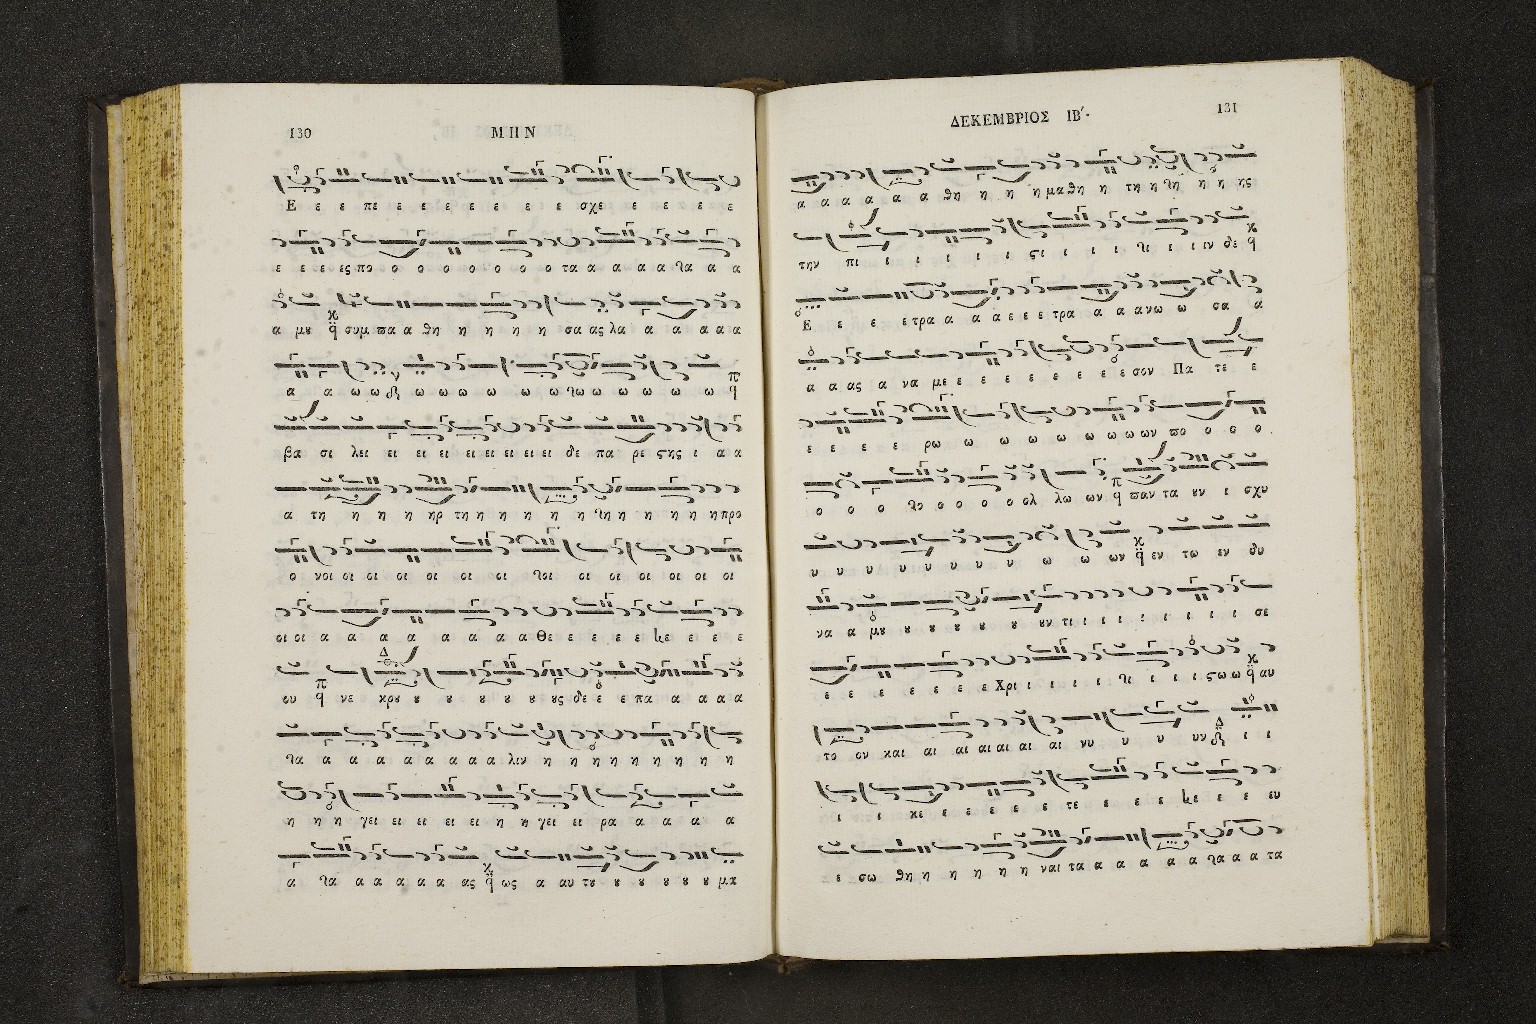 130 ΜΗΝ
Ε ε ε πε ε ε ε ε ε ε ε σχε ε ε ε ε
ε ε ε ες πο ο ο ο ο ο ο ο τα α α α α λα α α
α μυ ϙ συμ πα α θη η η η η σα ας λα α α α α α
α α ω ω ω ω ω ω ω λω ω ω ω ω ω ϙ
βα σι λει ει ει ει ει ει ει ει δε πα ρε ςης ι α α
α τη η η η ηρ τη η η η η λη η η η η η προ
ο νοι οι οι οι οι οι οι λοι οι οι οι οι οι οι
οι οι α α α α α α α α θε ε ε ε ε κε ε ε ε
ου ϙ νε κρου υ υ υ υ υ υ υς δε ε ε πα α α α α
λα α α α α α α α α λιν η η η η η η η η
η η η γει ει ει ει ει ει η η γει ει ρα α α α α
α λα α α α α α ας ϙ ως α αυ του υ υ υ υ υ μα
ΔΕΚΕΜΒΡΙΟΣ ΙΒ′. 131
α α α α α α θη η η η μα θη η τη η λη η η ης
την πι ι ι ι ι ι ςι ι ι ι λι ι ι ιν δε ϙ
Ε ε ε ε τρα α α α ε ε ε τρα α α α νω ω σα α
α α ας α να με ε ε ε ε ε ε ε ε σον Πα τε ε
ε ε ε ε ρω ω ω ω ω ω ω ω ων πο ο ο ο
ο ο ο λο ο ο ο ο ολ λω ων ϙ παν τα υν ι σχυ
υ υ υ υ υ υ υ υ ω ω ων ϙ εν τω εν δυ
να α μυ υ υ υ υ υ υν τι ι ι ι ι ι ι ι σε
ε ε ε ε ε ε ε Χρι ι ι ι ι λι ι ι ι ςω ω ϙ αυ
το ον και αι αι αι αι αι αι νυ υ υ υ υν ι ι
ι ι κε ε ε ε ε ε τε ε ε ε ε κε ε ε ευ
ε σω θη η η η η η ναι τα α α α α α λα α α τα